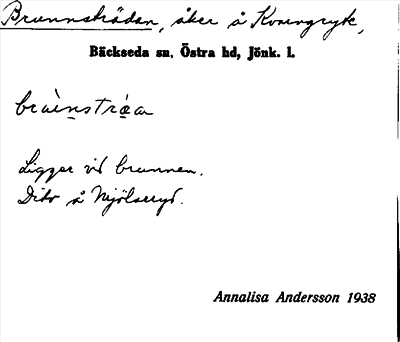 Brunnsträdan, åker å Kvarngryte,
Bäckseda sn, Östra hd, Jönk. l.
Ligger vid brunnen.
Dito å Mjölaryd.
Annalisa Andersson 1938